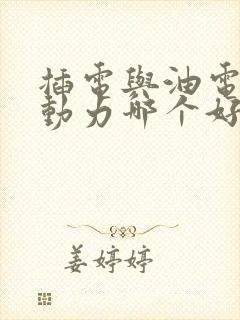 插電與油電
動力哪个好
姜婷婷